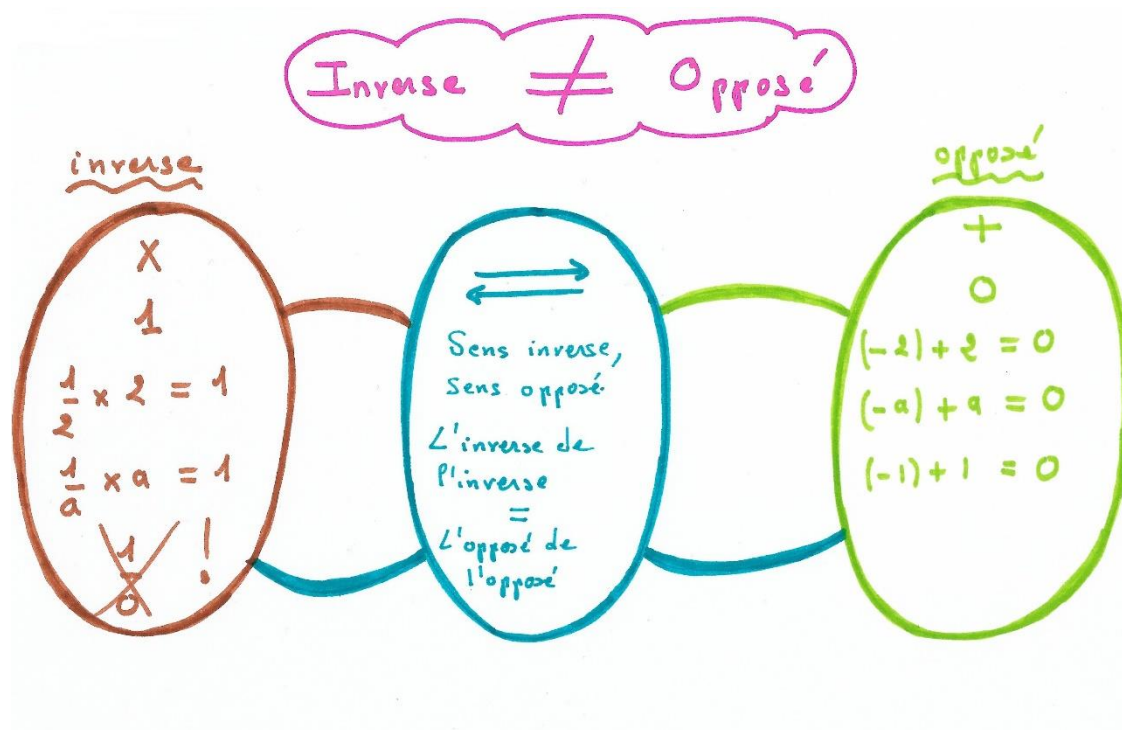 Inverse ≠ Opposé
inverse
×
1
1/2 × 2 = 1
1/a × a = 1
1/0 !
Sens inverse,
Sens opposé.
L'inverse de
l'inverse
=
L'opposé de
l'opposé
opposé
+
0
(-2) + 2 = 0
(-a) + a = 0
(-1) + 1 = 0